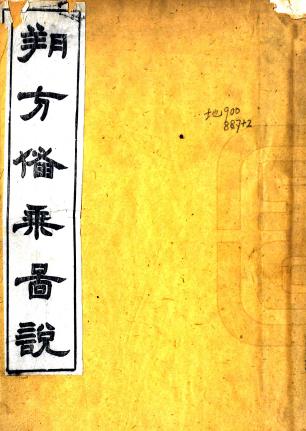 朔方備乘圖說
地900
887+2